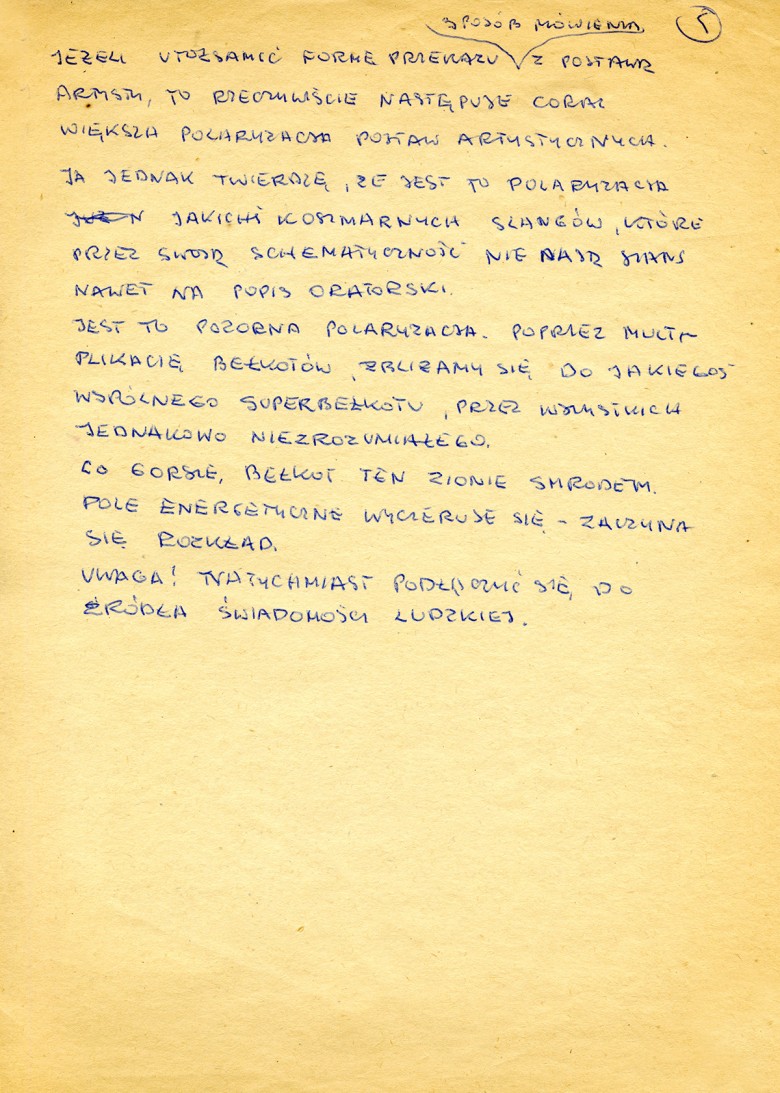 SPOSÓB MÓWIENIA 5
JEŻELI UTOŻSAMIĆ FORMĘ PRZEKAZU Z POSTAWĄ
ARTYSTY, TO RZECZYWIŚCIE NASTĘPUJE CORAZ
WIĘKSZA POLARYZACJA POSTAW ARTYSTYCZNYCH.
JA JEDNAK TWIERDZĘ, ŻE JEST TO POLARYZACJA
JAKICHŚ KOSZMARNYCH SLANGÓW, KTÓRE
PRZEZ SWOJĄ SCHEMATYCZNOŚĆ NIE DAJĄ SZANS
NAWET NA POPIS ORATORSKI.
JEST TO POZORNA POLARYZACJA. POPRZEZ MULTI-
PLIKACJĘ BEŁKOTÓW, ZBLIŻAMY SIĘ DO JAKIEGOŚ
WSPÓLNEGO SUPERBEŁKOTU, PRZEZ WSZYSTKICH
JEDNAKOWO NIEZROZUMIAŁEGO.
CO GORSZE, BEŁKOT TEN ZIONIE SMRODEM.
POLE ENERGETYCZNE WYCZERPUJE SIĘ - ZACZYNA
SIĘ ROZKŁAD.
UWAGA! NATYCHMIAST PODŁĄCZYĆ SIĘ DO
ŹRÓDŁA ŚWIADOMOŚCI LUDZKIEJ.